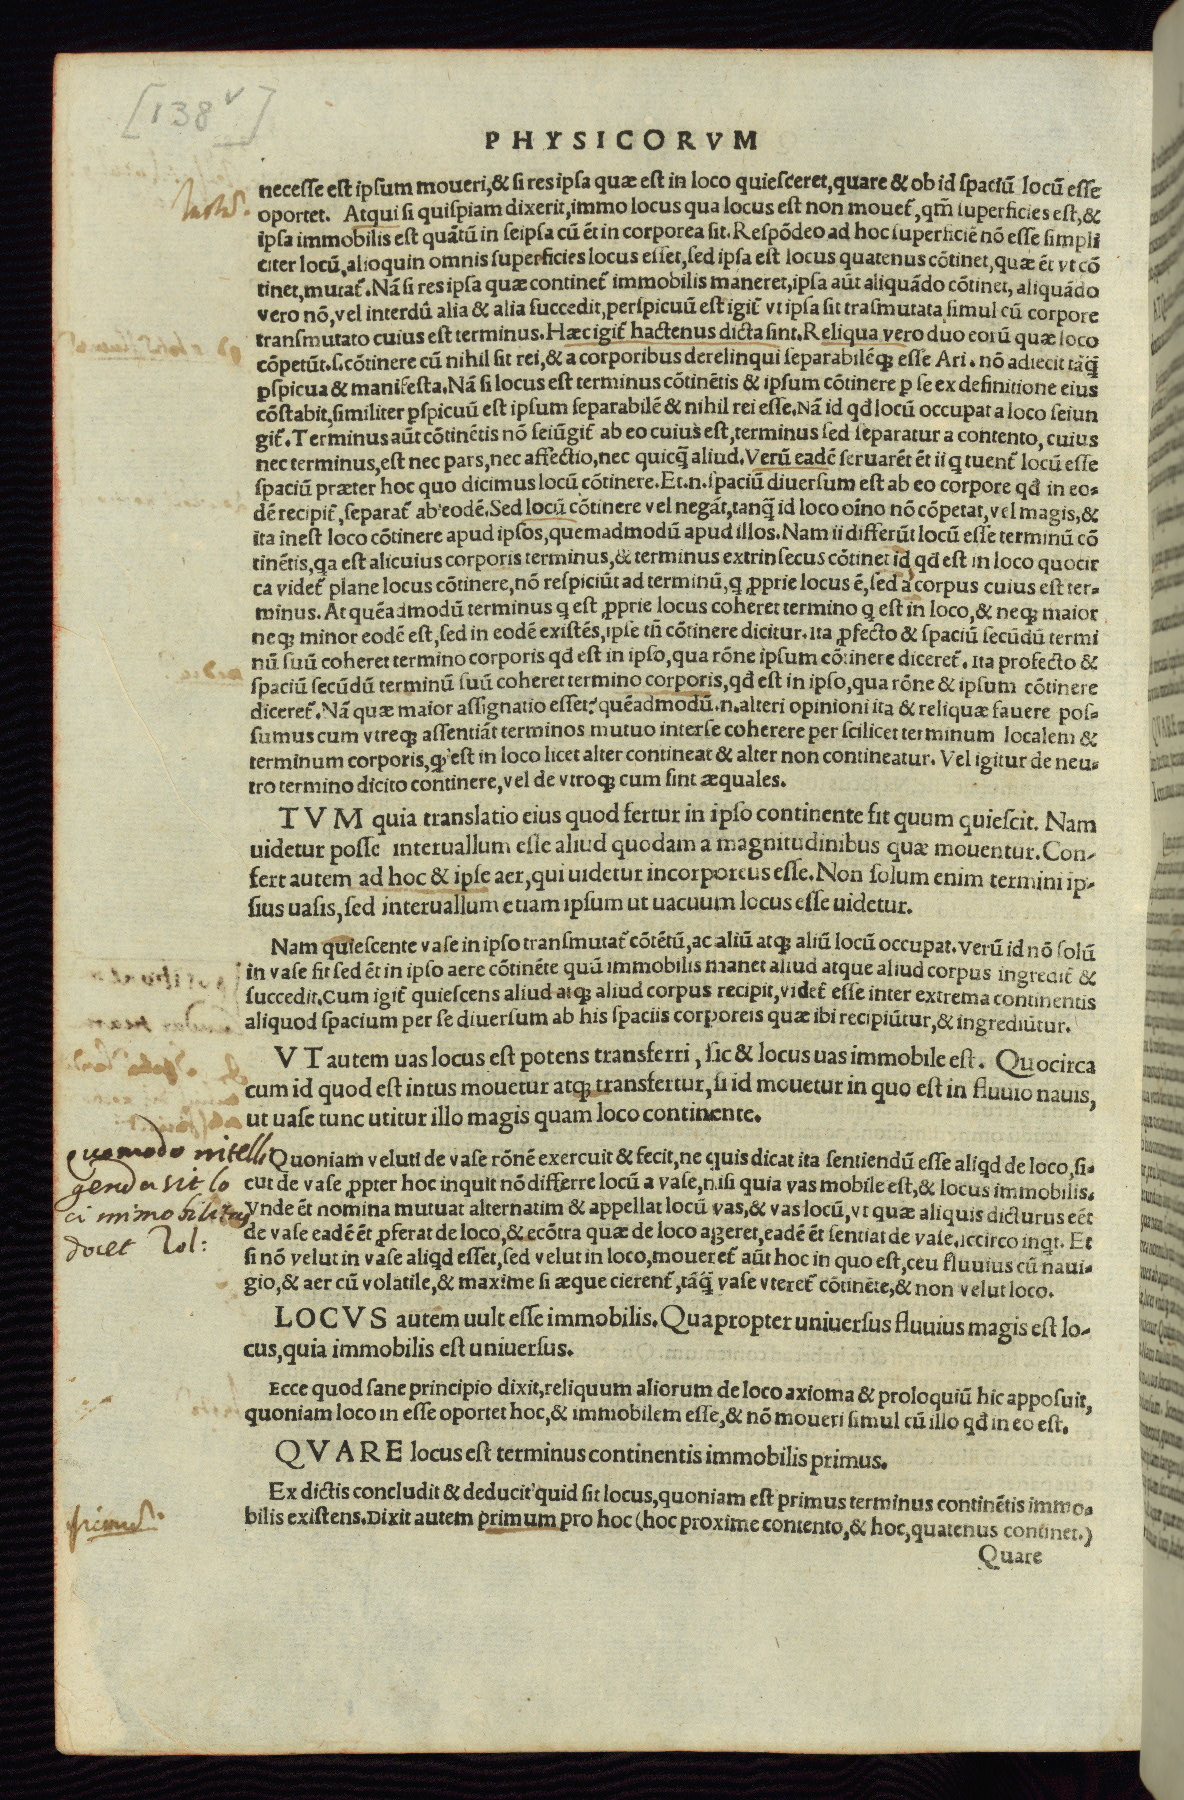 [138v]
PHYSICORVM
necesse est ipsum moueri,& si res ipsa quæ est in loco quiesceret,quare & ob id spaciũ locũ esse
oportet. Atqui si quispiam dixerit,immo locus qua locus est non mouet᷑,qm̃ superficies est,&
ipsa immobilis est quãtũ in seipsa cũ ẽt in corporea sit.Respõdeo ad hoc superficiẽ nõ esse simpli
citer locũ,alioquin omnis superficies locus esset,sed ipsa est locus quatenus cõtinet,quæ ẽt vt cõ
tinet,mutat᷑.Nã si res ipsa quæ continet᷑ immobilis maneret,ipsa aũt aliquãdo cõtinet,aliquãdo
vero nõ,vel interdũ alia & alia succedit,perspicuũ est igit᷑ vt ipsa sit trãsmutata simul cũ corpore
transmutato cuius est terminus.Hæc igit᷑ hactenus dicta sint.Reliqua vero duo eorũ quæ loco
cõpetũt.s.cõtinere cũ nihil sit rei,& a corporibus derelinqui separabilẽq; esse Ari. nõ adiecit tãq̃
ꝑspicua & manifesta.Nã si locus est terminus cõtinẽtis & ipsum cõtinere ꝑ se ex definitione eius
cõstabit,similiter ꝑspicuũ est ipsum separabilẽ & nihil rei esse.Nã id qđ locũ occupat a loco seiun
git᷑.Terminus aũt cõtinẽtis nõ seiũgit᷑ ab eo cuius est,terminus sed separatur a contento,cuius
nec terminus,est nec pars,nec affectio,nec quicq̃ aliud.Verũ eadẽ seruarẽt ẽt ii q tuent᷑ locũ esse
spaciũ præter hoc quo dicimus locũ cõtinere.Et.n.spaciũ diuersum est ab eo corpore qđ in eo-
dẽ recipit᷑,separat᷑ ab eodẽ.Sed locũ cõtinere vel negãt,tanq̃ id loco oĩno nõ cõpetat,vel magis,&
ita inest loco cõtinere apud ipsos,quemadmodũ apud illos.Nam ii differũt locũ esse terminũ cõ
tinẽtis,qa est alicuius corporis terminus,& terminus extrinsecus cõtinet id qđ est in loco quocir
ca videt᷑ plane locus cõtinere,nõ respiciũt ad terminũ,q ꝓprie locus ẽ,sed a corpus cuius est ter-
minus.At quẽadmodũ terminus q est ꝓprie locus coheret termino q est in loco,& neq; maior
neq; minor eodẽ est,sed in eodẽ existẽs,ipse tñ cõtinere dicitur.Ita ꝓfecto & spaciũ secũdũ termi
nũ suũ coheret termino corporis qđ est in ipso,qua rõne ipsum cõtinere diceret᷑.Ita profecto &
spaciũ secũdũ terminũ suũ coheret termino corporis,qđ est in ipso,qua rõne & ipsum cõtinere
diceret᷑.Nã quæ maior assignatio esset?quẽadmodũ.n.alteri opinioni ita & reliquæ fauere pos-
sumus cum vtreq; assentiãt terminos mutuo inter se coherere per scilicet terminum localem &
terminum corporis,q est in loco licet alter contineat & alter non contineatur.Vel igitur de neu-
tro termino dicito continere,vel de vtroq; cum sint æquales.
TVM quia translatio eius quod fertur in ipso continente fit quum quiescit. Nam
uidetur posse interuallum esse aliud quodam a magnitudinibus quæ mouentur.Con-
fert autem ad hoc & ipse aer,qui uidetur incorporeus esse.Non solum enim termini ip-
sius uasis,sed interuallum etiam ipsum ut uacuum locus esse uidetur.
Nam quiescente vase in ipso transmutat᷑ cõtẽtũ,ac aliũ atq; aliũ locũ occupat.Verũ id nõ solũ
in vase fit sed ẽt in ipso aere cõtinẽte quũ immobilis manet aliud atque aliud corpus ingredit᷑ &
succedit.Cum igit᷑ quiescens aliud atq; aliud corpus recipit,videt᷑ esse inter extrema continentis
aliquod spacium per se diuersum ab his spaciis corporeis quæ ibi recipiũtur,& ingrediũtur.
VT autem uas locus est potens transferri, sic & locus uas immobile est. Quocirca
cum id quod est intus mouetur atq; transfertur,si id mouetur in quo est in fluuio nauis,
ut uase tunc utitur illo magis quam loco continente.
quomodo intelli
genda sit lo
ci immobilitas
docet Tol:
Quoniam veluti de vase rõnẽ exercuit & fecit,ne quis dicat ita sentiendũ esse aliqd de loco,si-
cut de vase ꝓpter hoc inquit nõ differre locũ a vase,nisi quia vas mobile est,& locus immobilis.
Vnde ẽt nomina mutuat alternatim & appellat locũ vas,& vas locũ,vt quæ aliquis dicturus eẽt
de vase eadẽ ẽt ꝓferat de loco,& ecõtra quæ de loco ageret,eadẽ ẽt sentiat de vase.iccirco inqt. Et
si nõ velut in vase aliqd esset,sed velut in loco,moueret᷑ aũt hoc in quo est,ceu fluuius cũ naui-
gio,& aer cũ volatile,& maxime si æque cierent᷑,tãq̃ vase vteret᷑ cõtinẽte,& non velut loco.
LOCVS autem uult esse immobilis.Quapropter uniuersus fluuius magis est lo-
cus,quia immobilis est uniuersus.
Ecce quod sane principio dixit,reliquum aliorum de loco axioma & proloquiũ hic apposuit,
quoniam loco in esse oportet hoc,& immobilem esse,& nõ moueri simul cũ illo qđ in eo est.
QVARE locus est terminus continentis immobilis primus.
Ex dictis concludit & deducit quid sit locus,quoniam est primus terminus continẽtis immo-
bilis existens.Dixit autem primum pro hoc (hoc proxime contento,& hoc,quatenus continet.)
primus.
Quare